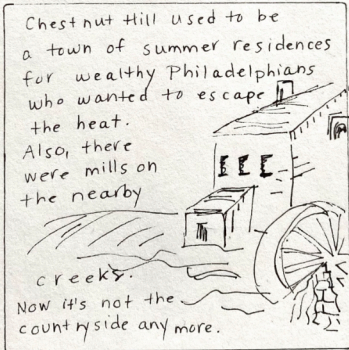 Chestnut Hill used to be
a town of summer residences
for wealthy Philadelphians
who wanted to escape
the heat.
Also, there
were mills on
the nearby
creeks.
Now it's not the
countryside anymore.